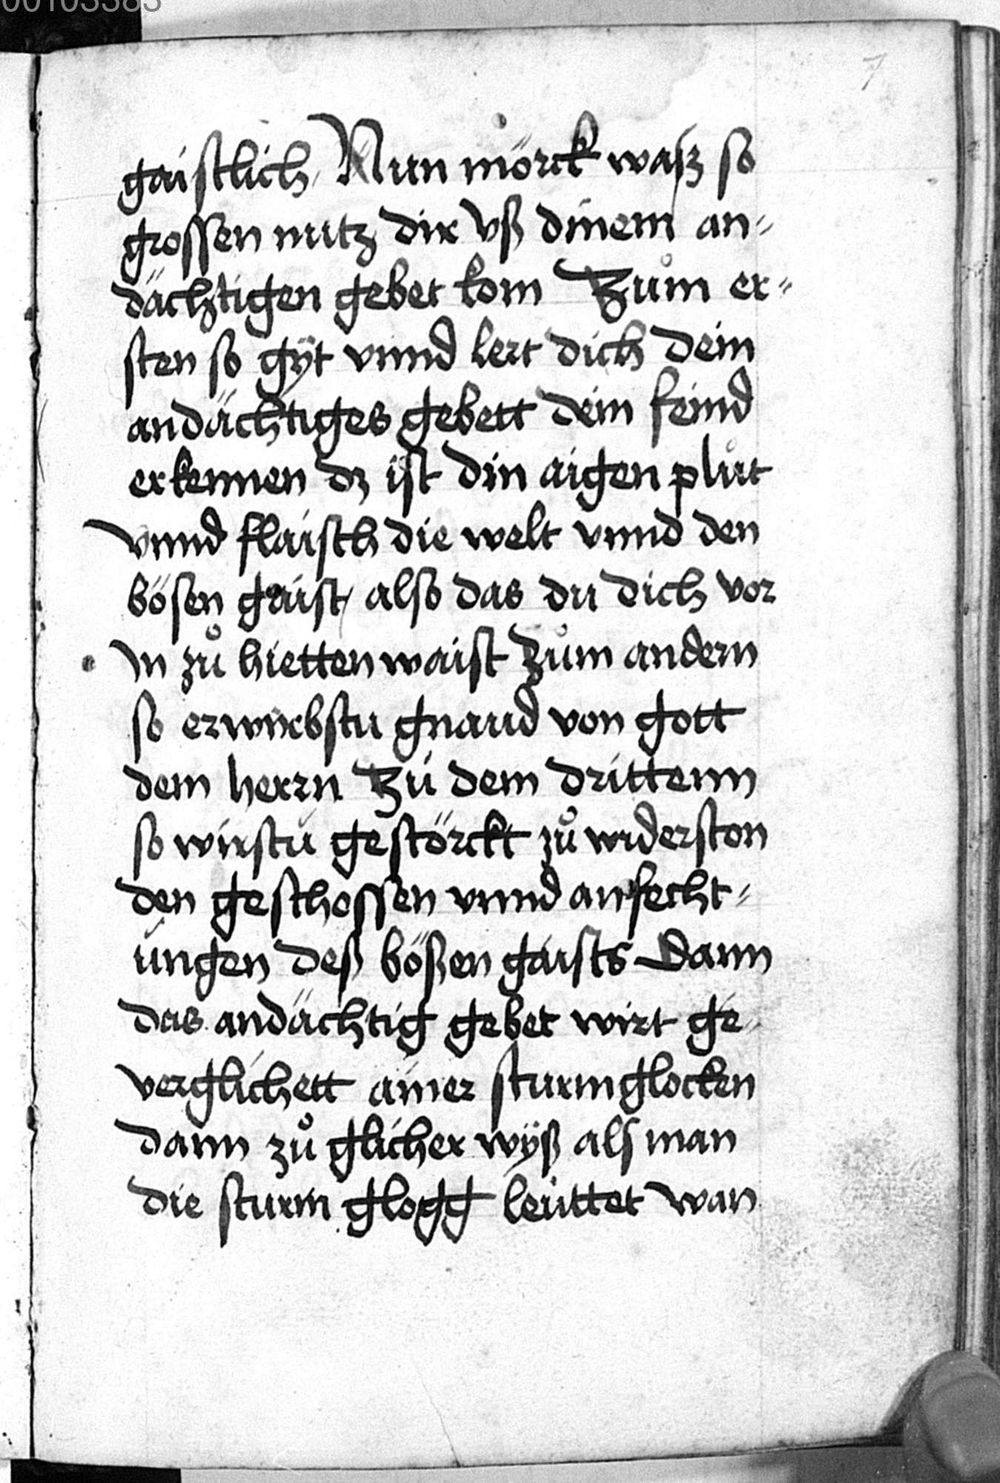 00103383
7
gaistlich Nun mörck wasz so
grossen nutz dir vß dinem an-
dächtigen gebet kom Zům er-
sten so gÿt vnnd lert dich dein
andächtiges gebett dein feind
erkennen dz ist din aigen plůt
vnnd flaisch die welt vnnd den
bösen gaist / also das du dich vor
In zů hietten waist Zům andern
so erwirbstu gnaud von gott
dem herrn Zů dem drittenn
so wirstu gestörckt zů widerston
den geschossen vnnd anfecht-
ungen deß bößen gaists Dann
das andächtig gebet wirt ge-
verglichett ainer sturmglocken
dann zů glicher wÿß als man
die sturm glogg leüttet wan